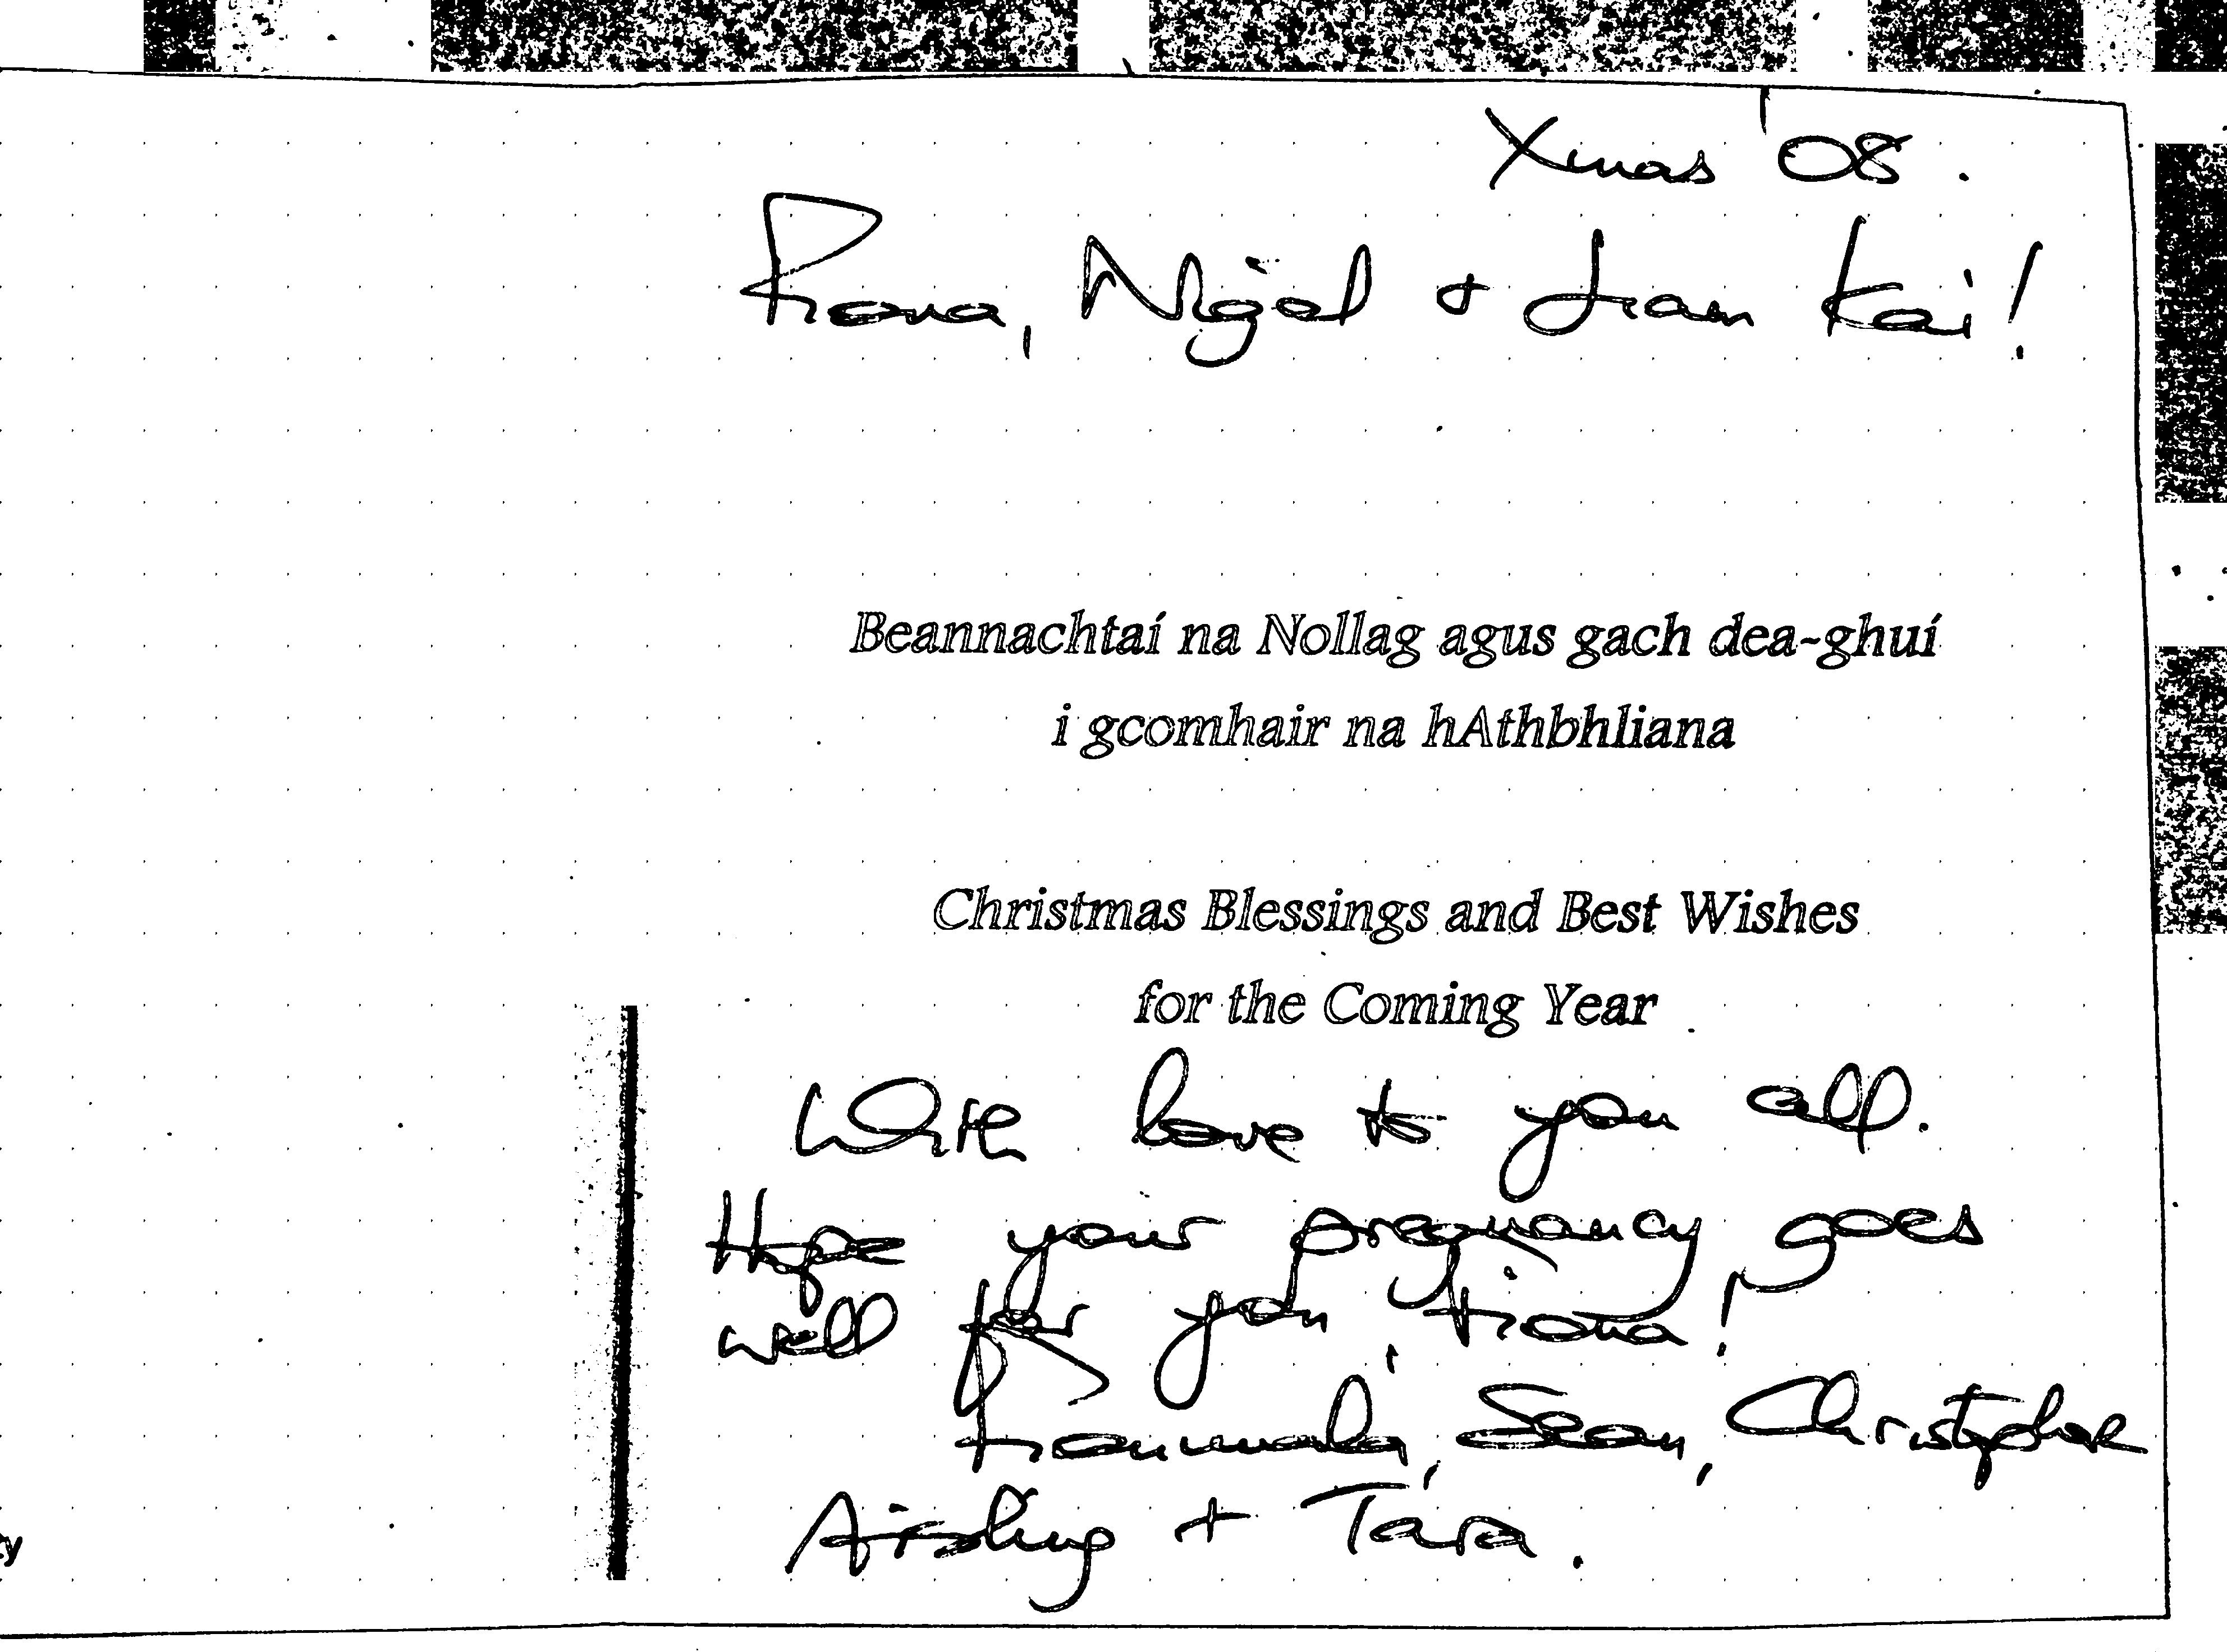 Xmas '08.
Fiona, Nigel + Liam Kai!
Beannachtaí na Nollag agus gach dea-ghuí
i gcomhair na hAthbhliana
Christmas Blessings and Best Wishes
for the Coming Year
With love to you all.
Hope your pregnancy goes
well for you, Fiona!
Sean, Christopher
Aisling + Tara.